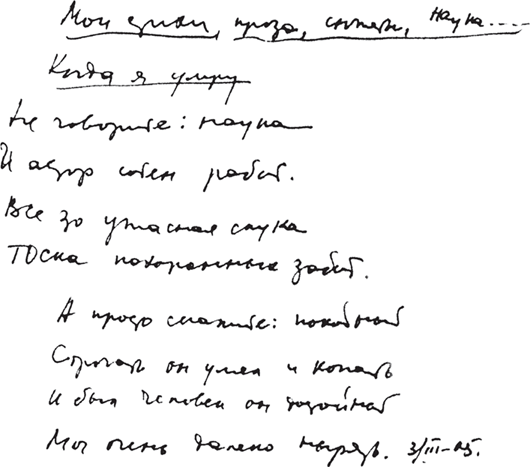 Мои стихи, проза, статьи, наука.....
Когда я умру
Не говорите: наука
И автор сотен работ.
Все это ужасная скука
Тоска похоронных забот.
А просто скажите: покойный
Строгать он умел и копать
И был человек он достойный
Мог очень далеко нырять. 3/III-05.